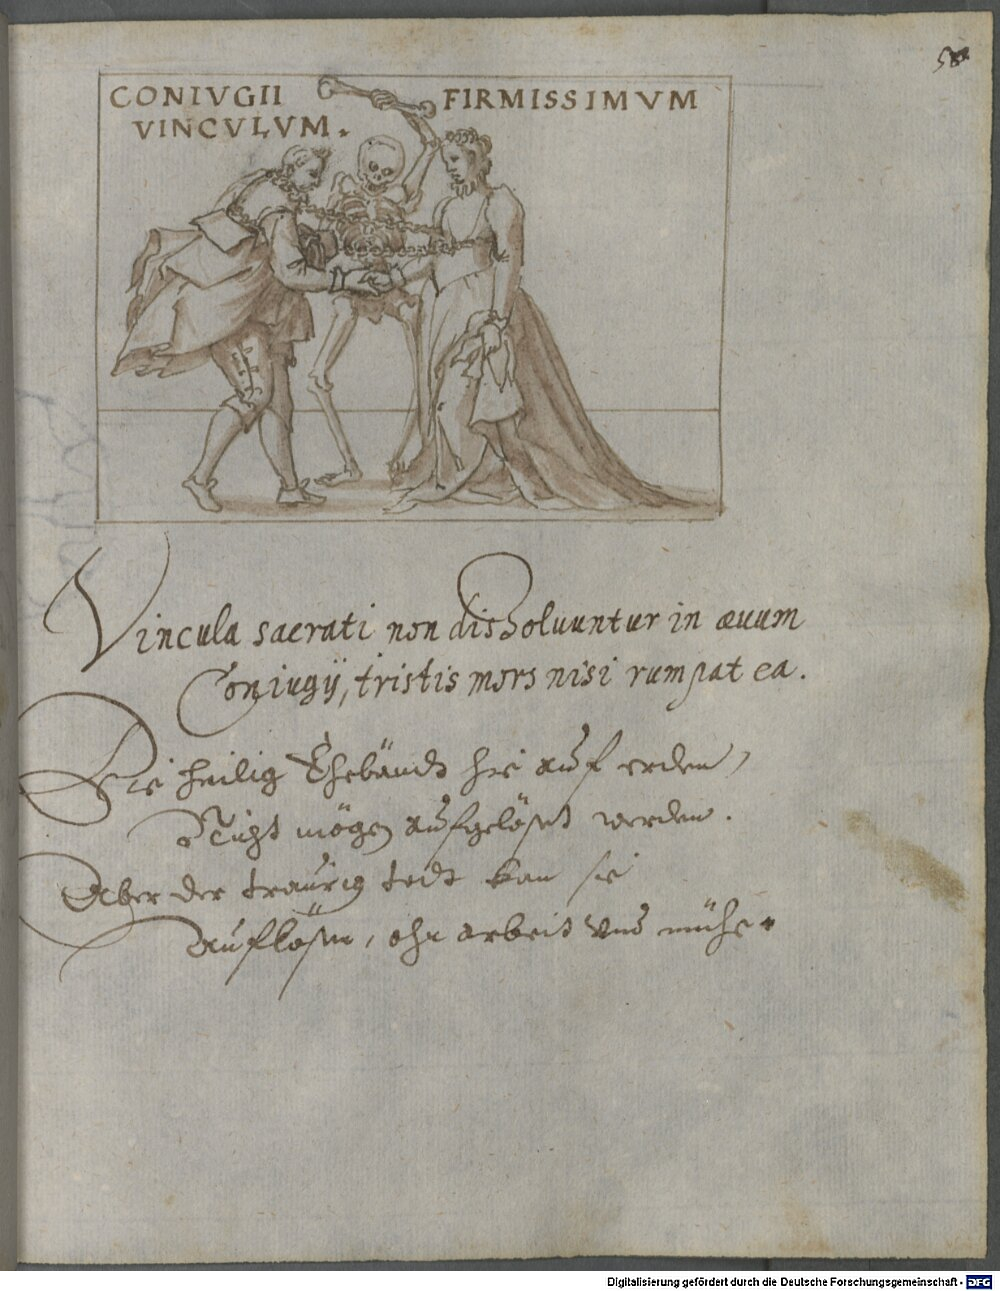 CONIVGII FIRMISSIMVM
VINCVLVM.
Vincula sacrati non dissoluuntur in æuum
Coniugij, tristis mors nisi rumpat ea.
Die heilig Ehebändt hie auf erden,
Nicht mögen aufgelöset werden.
Aber der traurig todt kan sie
Auflösen, ohn arbeit vnd mühe.
Digitalisierung gefördert durch die Deutsche Forschungsgemeinschaft - DFG